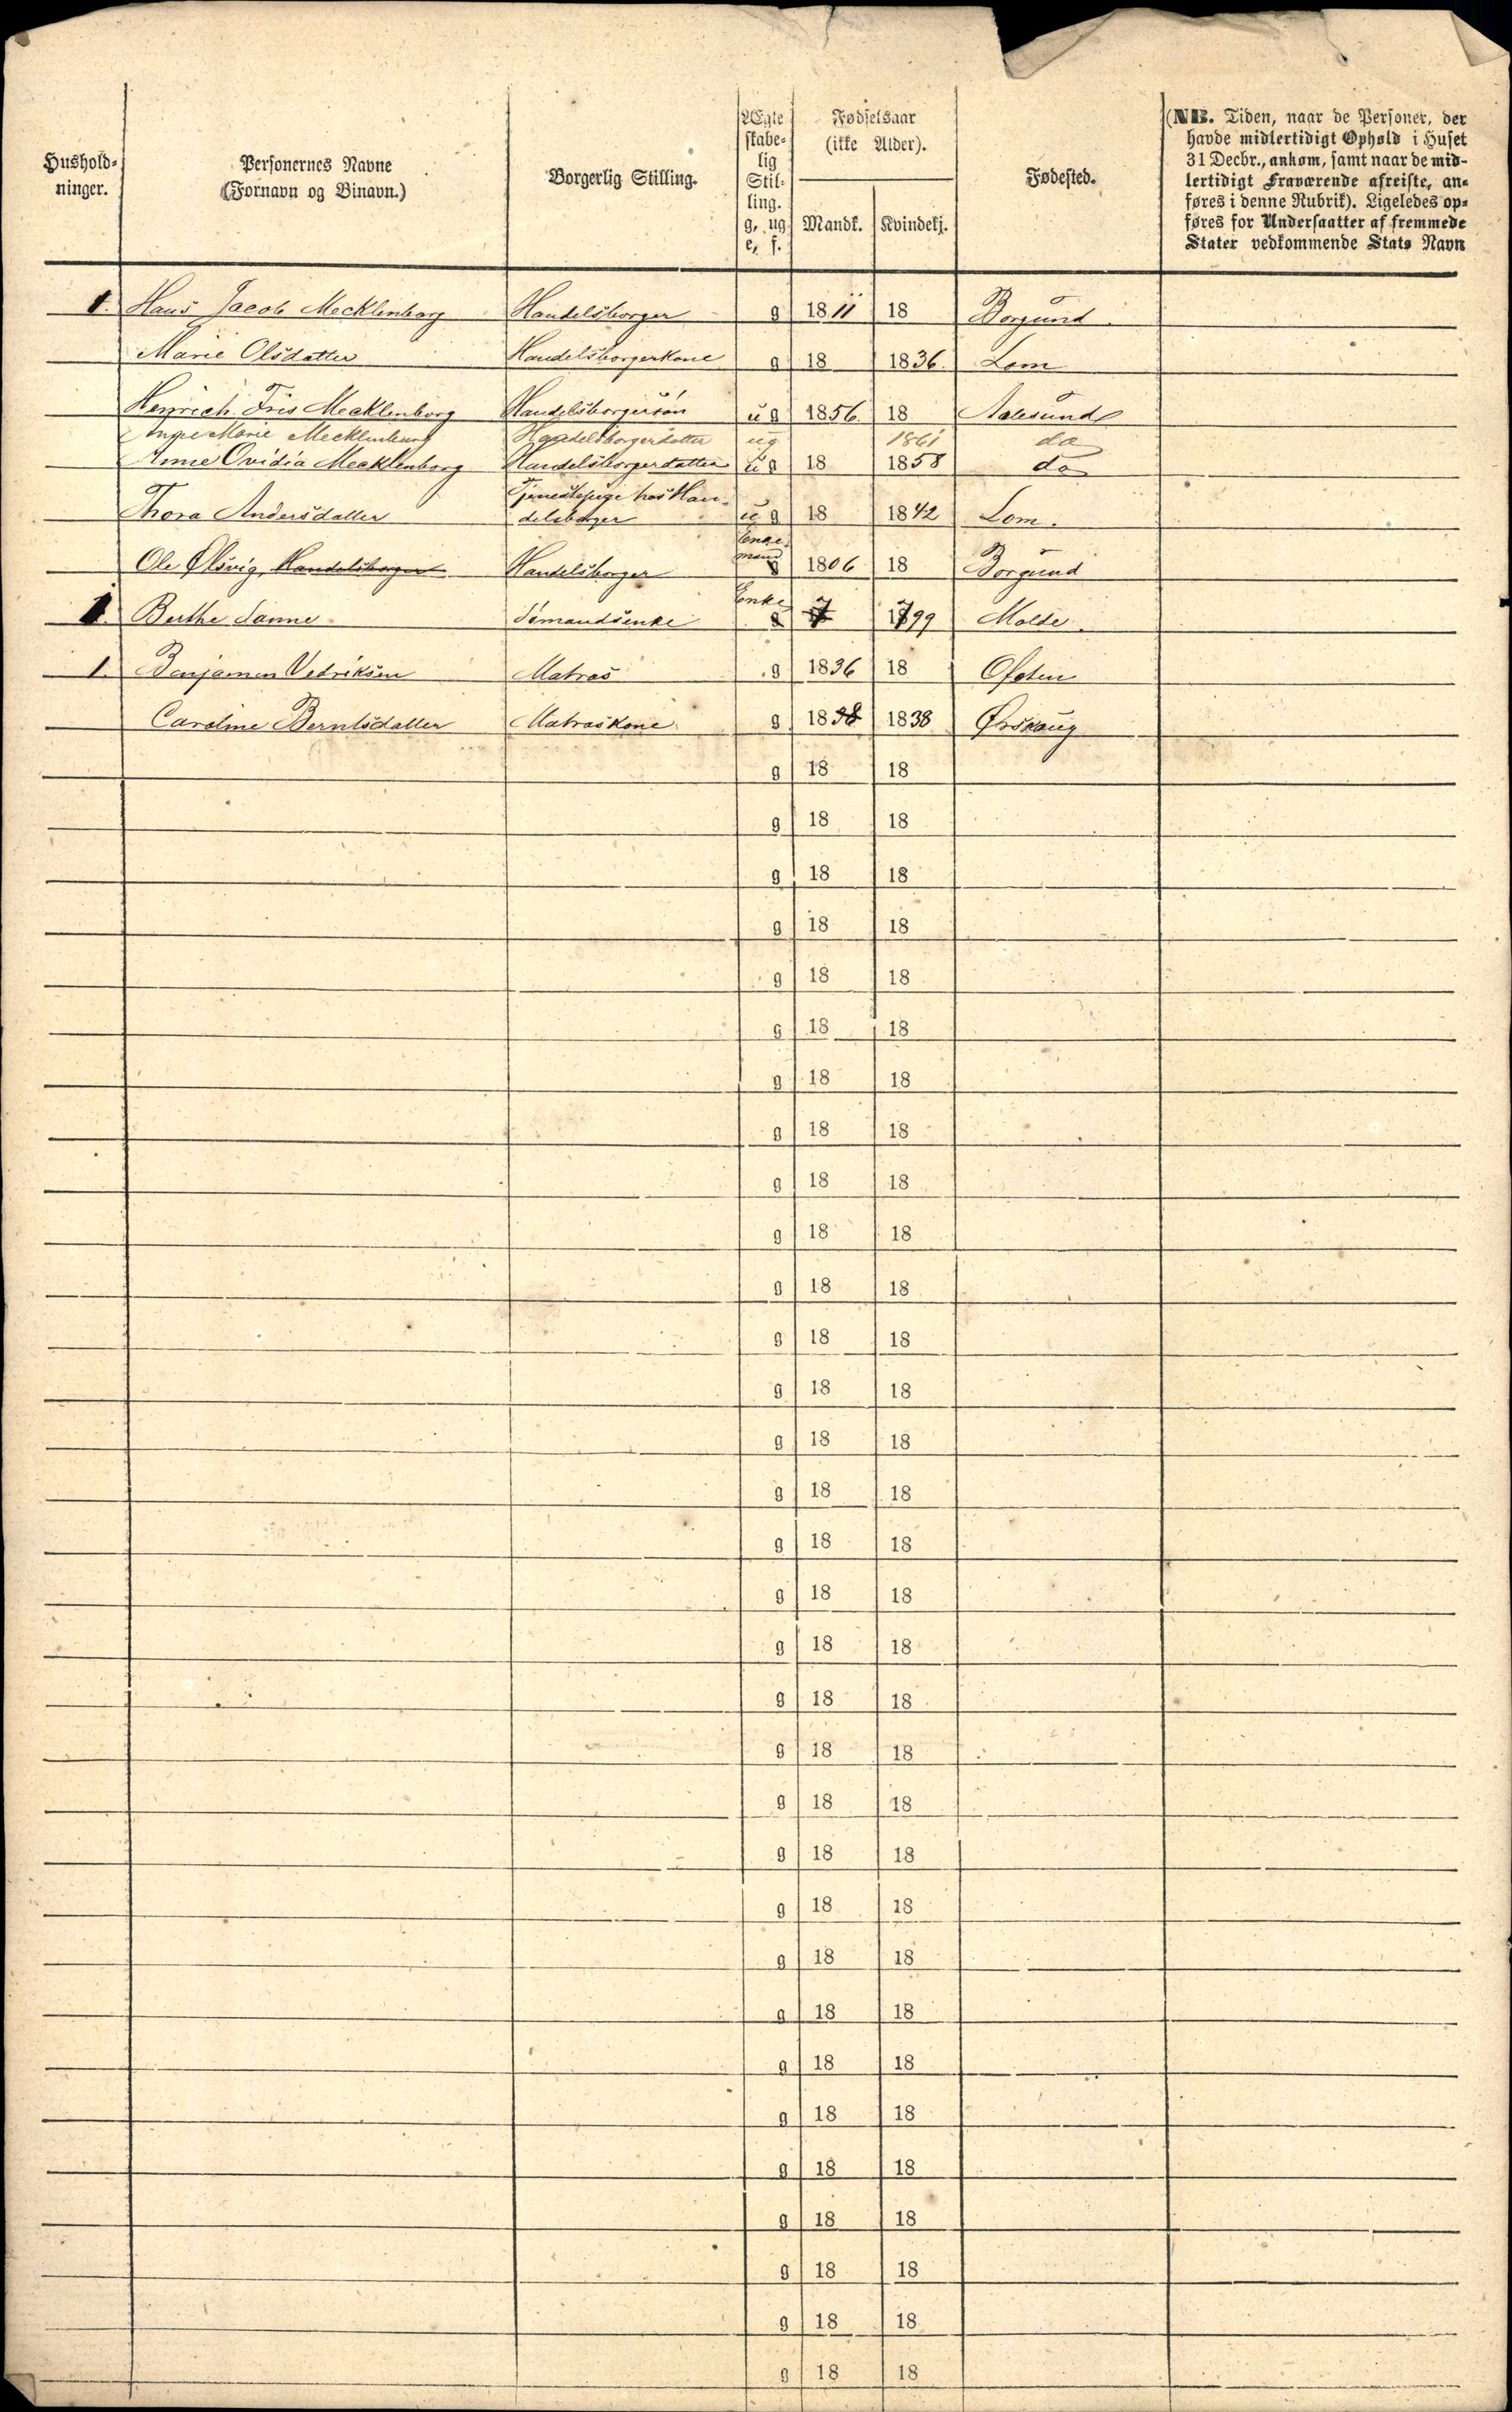 Hushold-
ninger.
Personernes Navne
(Fornavn og Binavn.)
Borgerlig Stilling.
Ægte
skabe-
lig
Stil-
ling.
g, ug
e, f.
Fødselsaar
(ikke Alder).
Mandk. Kvindekj.
Fødested.
(NB. Tiden, naar de Personer, der
havde midlertidigt Ophold i Huset
31 Decbr., ankom, samt naar de mid-
lertidigt Fraværende afreiste, an-
føres i denne Rubrik). Ligeledes op-
føres for Undersaatter af fremmede
Stater vedkommende Stats Navn
1. Hans Jacob Mecklenborg Handelsborger g 1811 18 Borgund.
Marie Olsdatter Handelsborgerkone g 18 1836. Lom
Henrich Friis Mecklenborg Handelsborgersøn ug 1856. 18 Aalesund
Marie Mecklenburg Handelsborgerdatter ug 1861 do
Anne Ovidia Mecklenborg Handelsborgerdatter ug 18 1858 do
Thora Andersdatter Tjenestepige hos Han-
delsborger ug 18 1842 Lom.
Ole Ølsvig, Handelsborger Handelsborger Enke
mand g 1806 18 Borgund
1. Berthe Sanne Sømandsenke Enke g 1799 Molde.
1. Benjamin Vedriksen Matros g 1836 18 Ofoten
Caroline Berntsdatter Matroskone g 1838 1838 Ørskoug
g 18 18
g 18 18
g 18 18
g 18 18
g 18 18
g 18 18
g 18 18
g 18 18
g 18 18
g 18 18
g 18 18
g 18 18
g 18 18
g 18 18
g 18 18
g 18 18
g 18 18
g 18 18
g 18 18
g 18 18
g 18 18
g 18 18
g 18 18
g 18 18
g 18 18
g 18 18
g 18 18
g 18 18
g 18 18
g 18 18
g 18 18
g 18 18